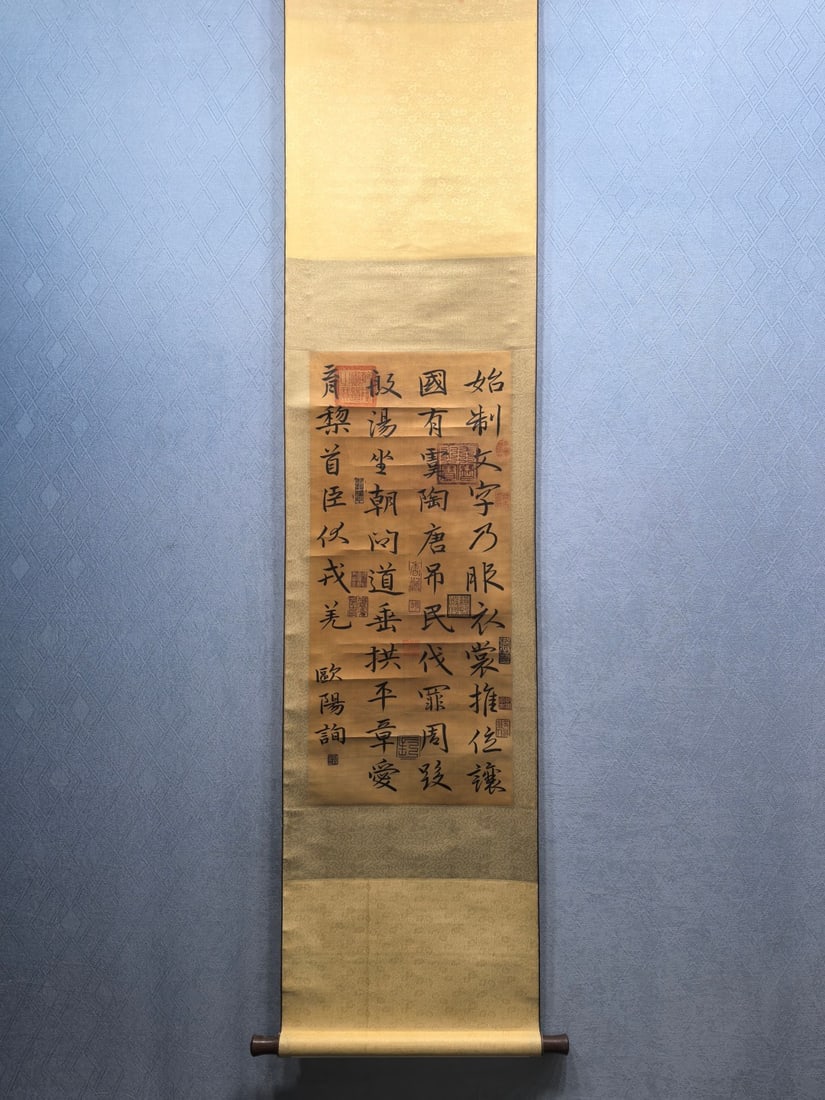 始制文字乃服衣裳推位讓
國有虞陶唐吊民伐罪周發
殷湯坐朝問道垂拱平章愛
育黎首臣伏戎羌
歐陽詢